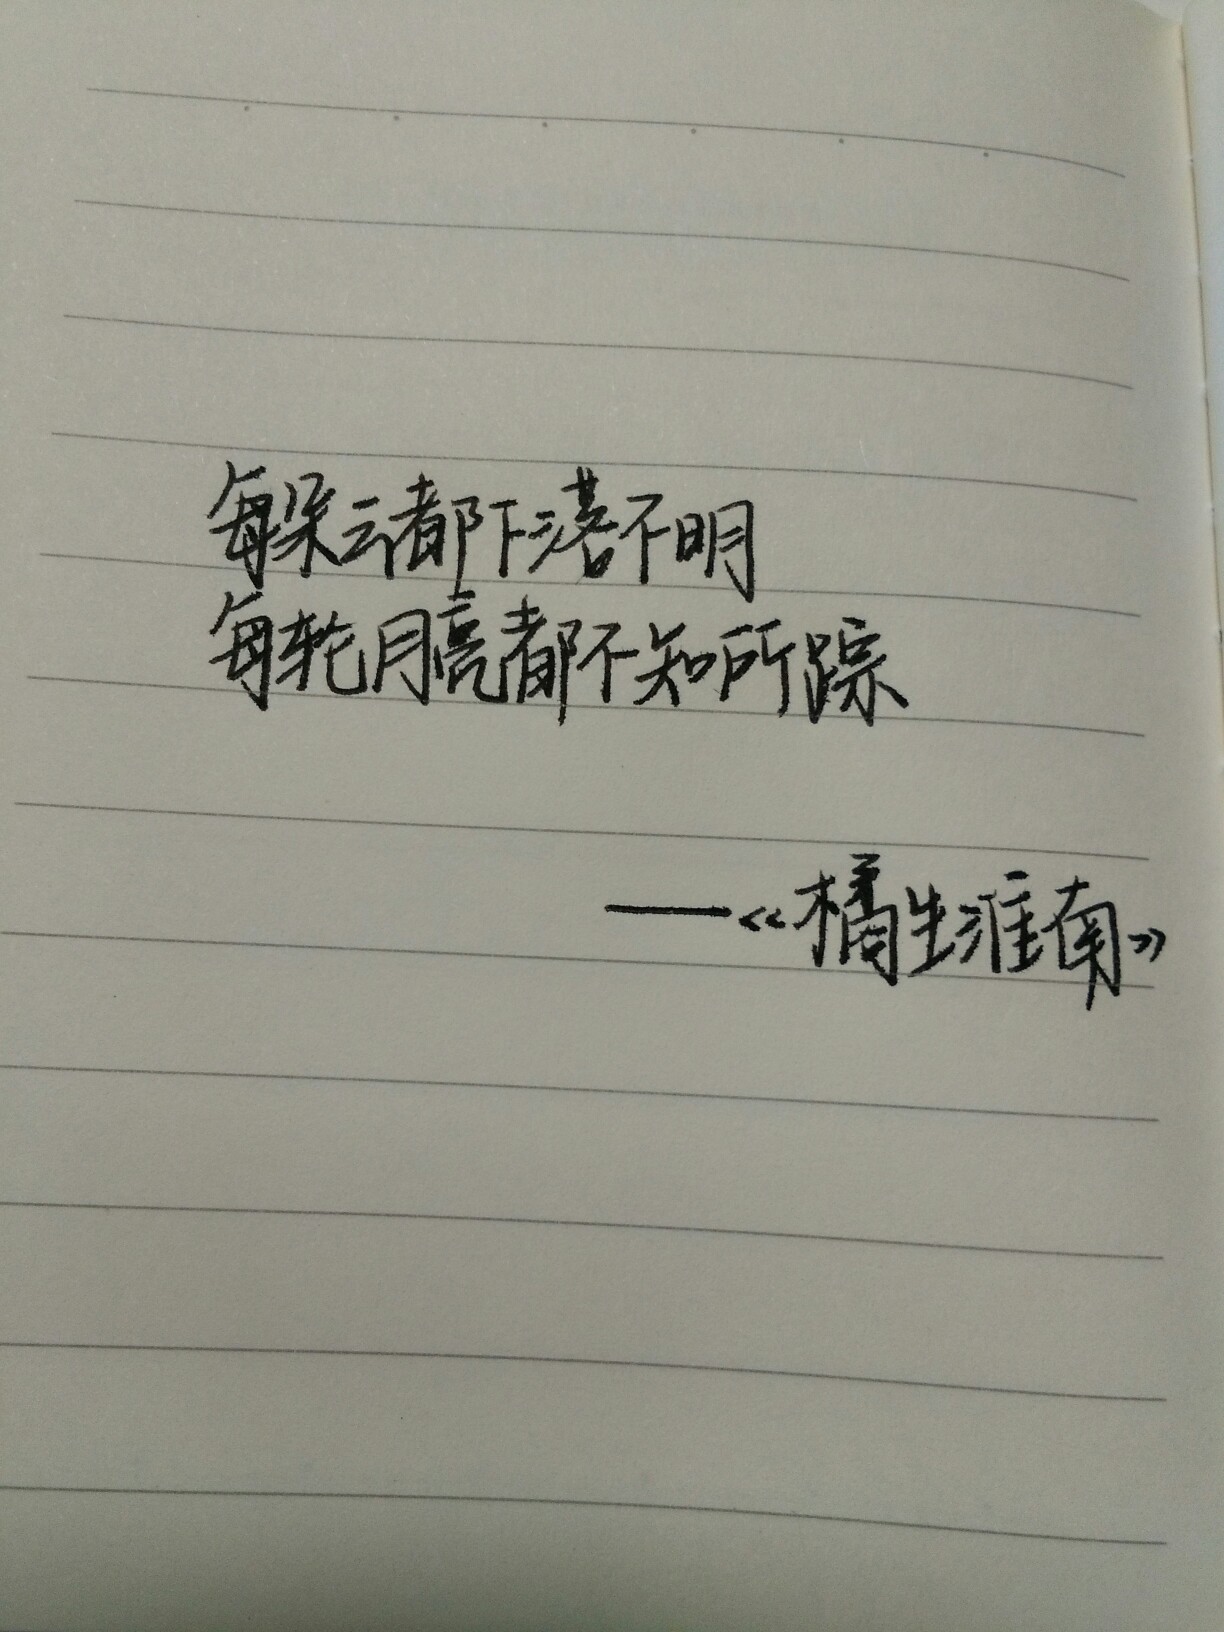 每朵云都下落不明
每轮月亮都不知所踪
——《橘生淮南》